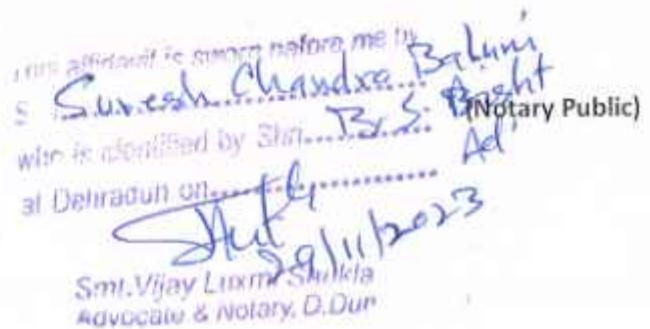 This affidavit is sworn before me by
S Suresh Chandra Baluni
(Notary Public)
who is identified by Shri B. S. Bisht
Ad
at Dehradun on
29/11/2023
Smt. Vijay Luxmi Shukla
Advocate & Notary, D.Dun